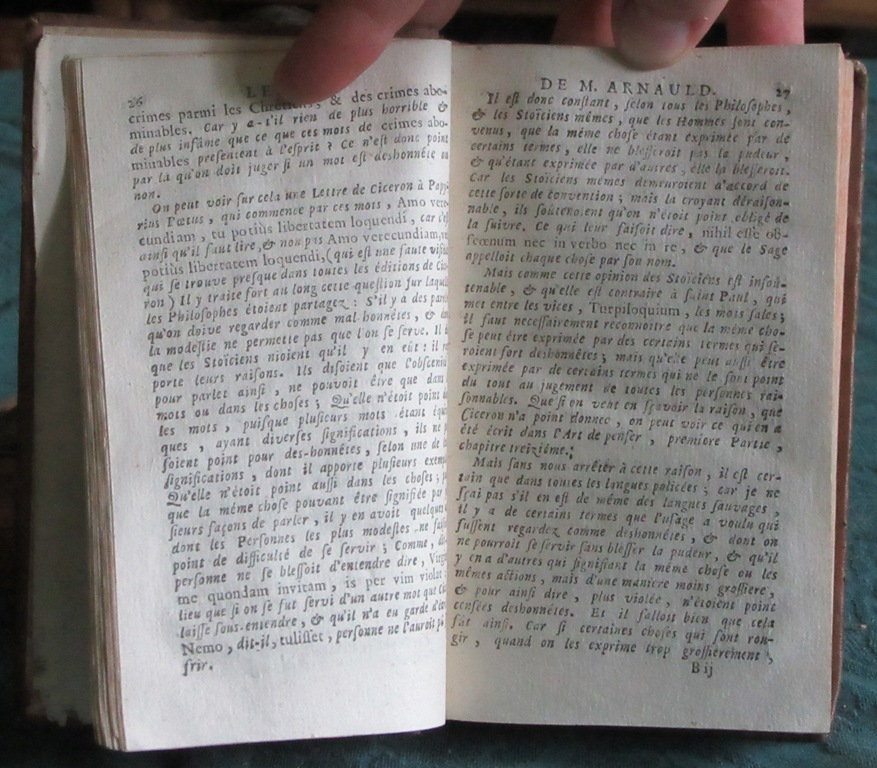 26 LE
crimes parmi les Chrétiens, & des crimes abo-
minables. Car y a-t'il rien de plus horrible &
de plus infâme que ce que ces mots de crimes abo-
minables présentent à l'esprit ? Ce n'est donc point
par là qu'on doit juger si un mot est deshonnête ou
non.
On peut voir sur cela une Lettre de Ciceron à Papy-
rius Pœtus, qui commence par ces mots, Amo vere-
cundiam, tu potius libertatem loquendi, car c'est
ainsi qu'il faut lire, & non pas Amo verecundiam, vel
potius libertatem loquendi, (qui est une faute visible
qui se trouve presque dans toutes les éditions de Cice-
ron) Il y traite fort au long cette question sur laquelle
les Philosophes étoient partagez : S'il y a des paroles
qu'on doive regarder comme mal honnêtes, & dont
la modestie ne permette pas que l'on se serve. Il dit
que les Stoïciens nioient qu'il y en eût : il rap-
porte leurs raisons. Ils disoient que l'obscenité,
pour parler ainsi, ne pouvoit être que dans les
mots ou dans les choses ; Qu'elle n'étoit point dans
les mots, puisque plusieurs mots étant équivo-
ques, ayant diverses significations, ils ne pas-
soient point pour des-honnêtes, selon une de leurs
significations, dont il apporte plusieurs exemples
Qu'elle n'étoit point aussi dans les choses ; parce
que la même chose pouvant être signifiée par plu-
sieurs façons de parler, il y en avoit quelques-unes
dont les Personnes les plus modestes ne faisoient
point de difficulté de se servir ; Comme, dit-il,
personne ne se blessoit d'entendre dire, Virginem
me quondam invitam, is per vim violat : au
lieu que si on se fut servi d'un autre mot que Ciceron
laisse sous-entendre, & qu'il n'a eu garde d'écrire,
Nemo, dit-il, tulisset, personne ne l'auroit pû souf-
frir.
DE M. ARNAULD. 27
Il est donc constant, selon tous les Philosophes,
& les Stoïciens mêmes, que les Hommes sont con-
venus, que la même chose étant exprimée par de
certains termes, elle ne blesseroit pas la pudeur,
& qu'étant exprimée par d'autres, elle la blesseroit.
Car les Stoïciens mêmes demeuroient d'accord de
cette sorte de convention ; mais la croyant déraison-
nable, ils soûtenoient qu'on n'étoit point obligé de
la suivre. Ce qui leur faisoit dire, nihil esse ob-
scœnum nec in verbo nec in re, & que le Sage
appelloit chaque chose par son nom.
Mais comme cette opinion des Stoïciens est insoû-
tenable, & qu'elle est contraire à saint Paul, qui
met entre les vices, Turpiloquium, les mots sales ;
il faut necessairement reconnoître que la même cho-
se peut être exprimée par des certains termes qui se-
roient fort deshonnêtes ; mais qu'elle peut aussi être
exprimée par de certains termes qui ne le sont point
du tout au jugement de toutes les personnes rai-
sonnables. Que si on veut en sçavoir la raison, que
Ciceron n'a point donnée, on peut voir ce qui en a
été écrit dans l'Art de penser, premiere Partie,
chapitre treizième.
Mais sans nous arrêter à cette raison, il est cer-
tain que dans toutes les langues policées ; car je ne
sçai pas s'il en est de même des langues sauvages,
il y a de certains termes que l'usage a voulu qui
fussent regardez comme deshonnêtes, & dont on
ne pourroit se servir sans blesser la pudeur, & qu'il
y en a d'autres qui signifiant la même chose ou les
mêmes actions, mais d'une maniere moins grossiere,
& pour ainsi dire, plus violée, n'étoient point
censées deshonnêtes. Et il falloit bien que cela
fût ainsi. Car si certaines choses qui font rou-
gir, quand on les exprime trop grossierement,
B ij